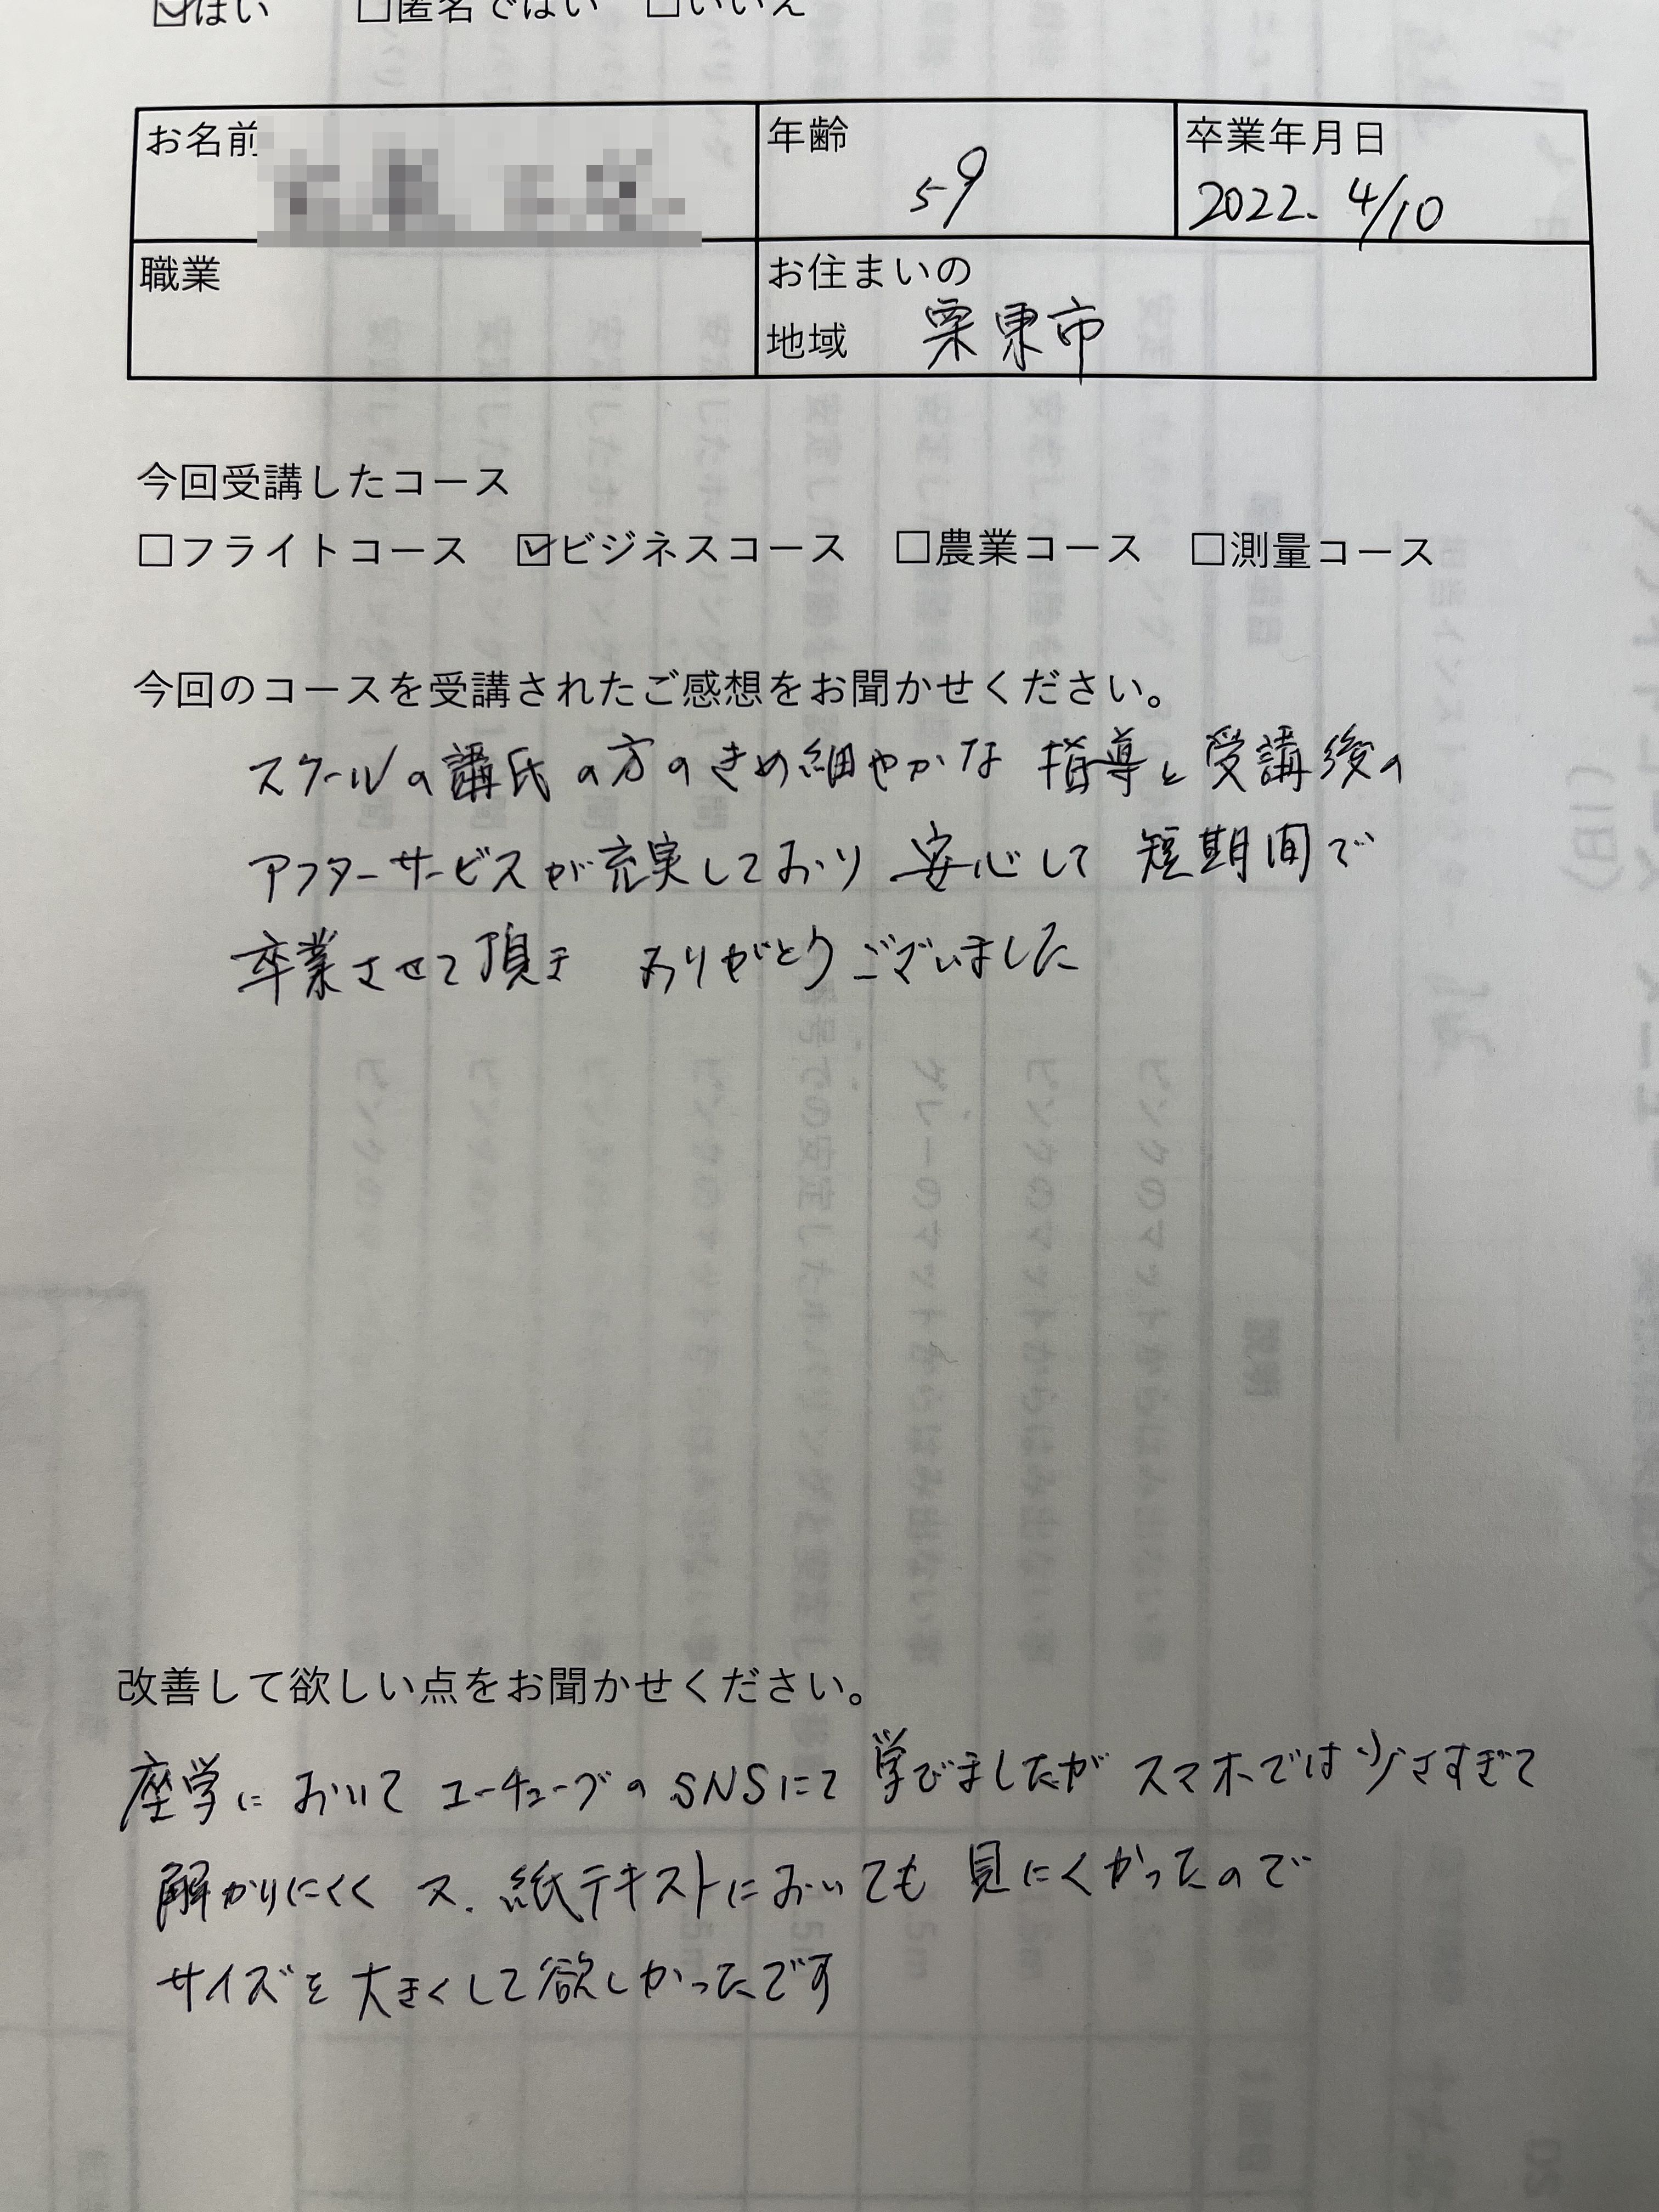 ☑はい　□匿名ではい　□いいえ
お名前
年齢
59
卒業年月日
2022. 4/10
職業
お住まいの
地域　栗東市
今回受講したコース
□フライトコース　☑ビジネスコース　□農業コース　□測量コース
今回のコースを受講されたご感想をお聞かせください。
スクールの講氏の方のきめ細やかな 指導と受講後の
アフターサービスが充実しており 安心して 短期間で
卒業させて頂き ありがとうございました
改善して欲しい点をお聞かせください。
座学に おいて ユーチューブの SNSにて 学びましたが スマホでは 少さすぎて
解かりにくく 又. 紙テキストにおいても 見にくかったので
サイズを 大きくして欲しかったです